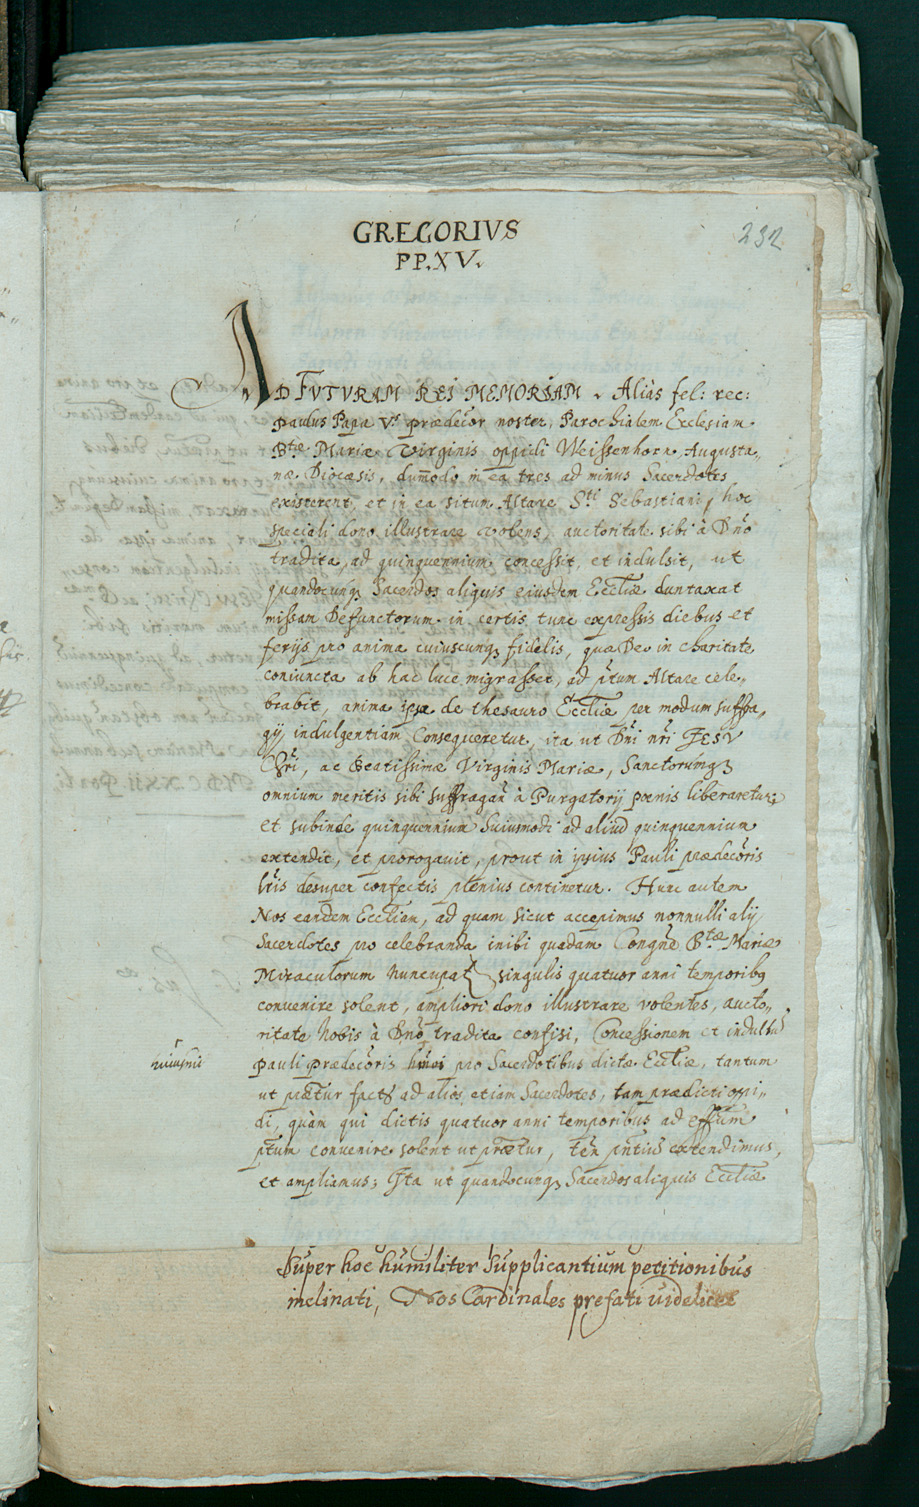 GREGORIVS
232
PP. XV.
AD FVTVRAM REI MEMORIAM. Aliàs fel: rec:
Paulus Papa V.s prædecor noster, Parochialem Ecclesiam
B.tæ Mariæ Virginis oppidi Weissenhorn Augusta-
næ Diœcesis, dummodo in ea tres ad minus Sacerdotes
existerent, et in ea situm Altare S.ti Sebastiani, hoc
speciali dono illustrare volens, auctoritate sibi à Dño
tradita, ad quinquennium concessit, et indulsit, ut
quandocunq Sacerdos aliquis eiusdem Eccliæ duntaxat
missam Defunctorum in certis tunc expressis diebus et
ferijs pro anima cuiuscunq fidelis, quæ Deo in charitate
coniuncta ab hac luce migrasset, ad ptum Altare cele-
brabit, anima ipsa de thesauro Eccliæ per modum suffra-
gij indulgentiam consequeretur, ita ut Dñi ñri JESV
Chri, ac Beatissimæ Virginis Mariæ, Sanctorumq
omnium meritis sibi suffragañ à Purgatorij pœnis liberaretur;
et subinde quinquennium huiusmodi ad aliud quinquennium
extendit, et prorogauit, prout in ipsius Pauli prædecoris
lris desuper confectis plenius continetur. Hunc autem
Nos eandem Eccliam, ad quam sicut accepimus nonnulli alij
Sacerdotes pro celebranda inibi quadam Congñe B.tæ Mariæ
Miraculorum nuncupat singulis quatuor anni temporibq
convenire solent, ampliori dono illustrare volentes, aucto-
ritate Nobis à Dño tradita confisi, Concessionem et indultu
Pauli prædecoris pro Sacerdotibus dictæ Eccliæ, tantum
ut præfetur fact ad alios etiam Sacerdotes, tam prædicti oppi-
di, quàm qui dictis quatuor anni temporibus ad effum
ptum convenire solent ut præfetur, teñ pñtiu extendimus,
et ampliamus; Ita ut quandocunq Sacerdos aliquis Eccliæ
super hoc humiliter supplicantium petitionibus
inclinati, Nos Cardinales prefati uidelicet